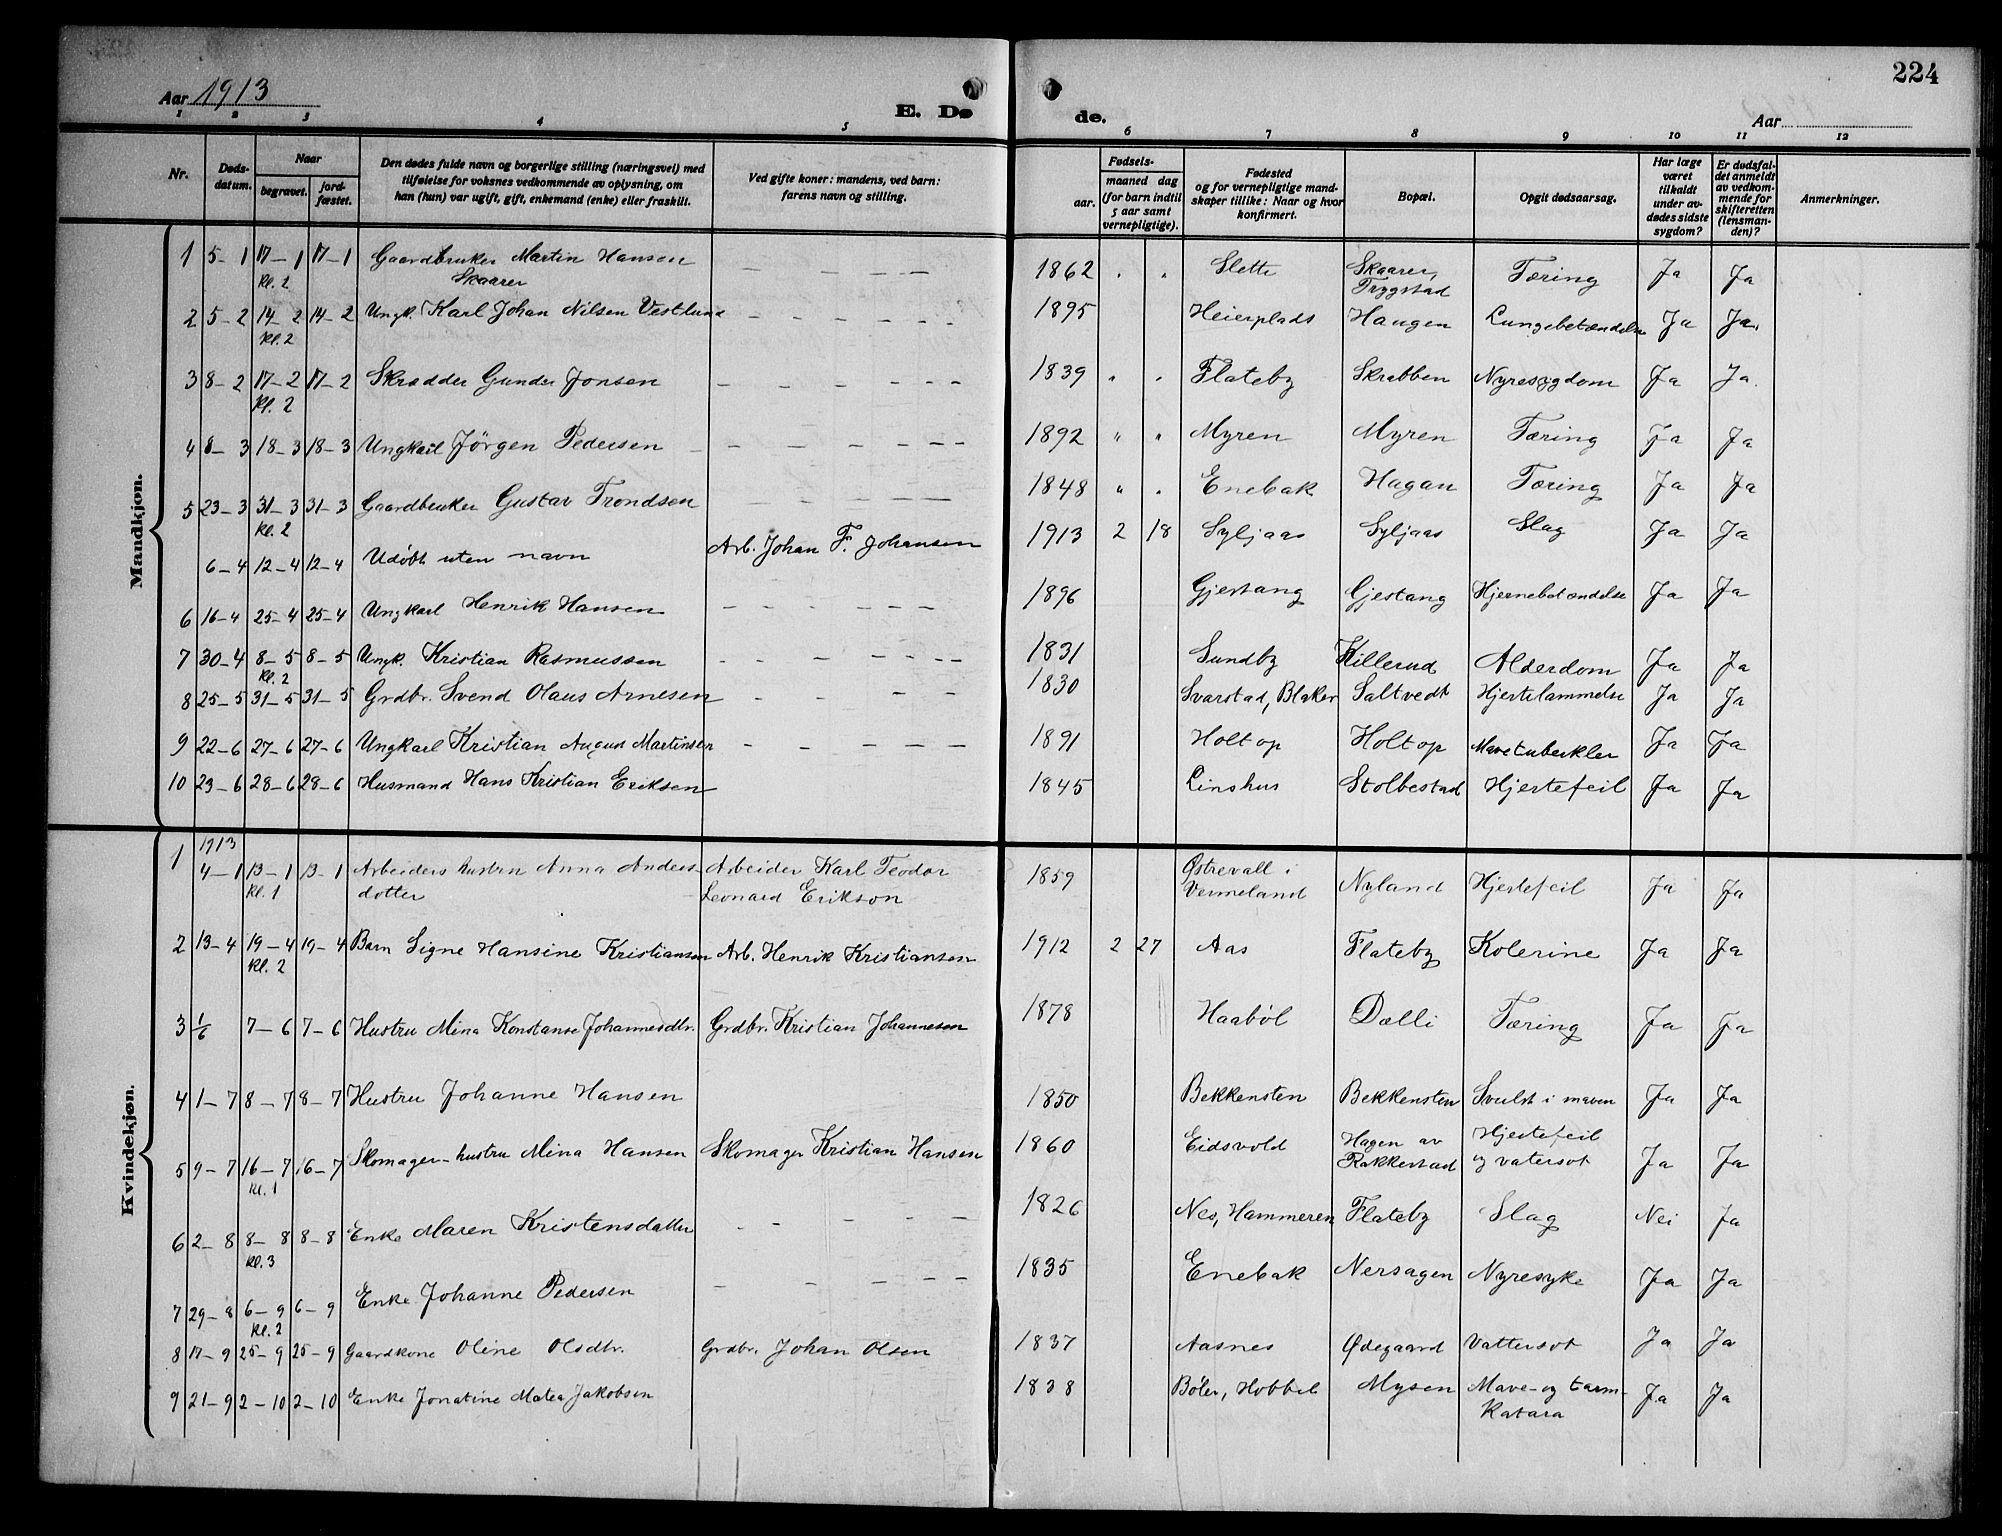 224
Aar 1913
E. Dø de.
Aar
1 2 3 4 5 6 7 8 9 10 11 12
Nr. Døds-datum. Naar begravet. jord-fæstet. Den dødes fulde navn og borgerlige stilling (næringsvei) med tilføielse for voksnes vedkommende av oplysning, om han (hun) var ugift, gift, enkemand (enke) eller fraskilt. Ved gifte koner: mandens, ved barn: farens navn og stilling. Fødsels- aar. maaned dag (for barn indtil 5 aar samt vernepligtige). Fødested og for vernepligtige mandskaper tillike: Naar og hvor konfirmert. Bopæl. Opgit dødsaarsag. Har læge været tilkaldt under avdødes sidste sygdom? Er dødsfaldet anmeldt av vedkommende for skifteretten (lensmanden)? Anmerkninger.
Mandkjøn.
1 5-1 17-1 kl. 2 17-1 Gaardbruker Martin Hansen Skaarer — — — — — 1862 " " Slette Skaarer, Trygstad Tæring Ja Ja
2 5-2 14-2 kl. 2 14-2 Ungk. Karl Johan Nilsen Vestlund — — — — — 1895 Heierplads Haugen Lungebetændelse Ja Ja.
3 8-2 17-2 kl. 2 17-2 Skrædder Gunder Jonsen — — — — — — 1839 " " Flateby Skrabben Nyresygdom Ja Ja.
4 8-3 18-3 18-3 Ungkarl Jörgen Pedersen — — — — — — 1892 " " Myren Myren Tæring Ja Ja
5 23-3 31-3 kl. 2 31-3 Gaardbruker Gustav Trondsen — — — — — 1848 " " Enebak Hagan Tæring Ja Ja
6-4 12-4 12-4 Udöbt uten navn Arb. Johan F. Johansen 1913 2 18 Syljaas Syljaas Slag Ja Ja
6 16-4 25-4 25-4 Ungkarl Henrik Hansen — — — — — 1896 Gjestang Gjestang Hjernebetændelse Ja Ja
7 30-4 8-5 kl. 2 8-5 Ungk. Kristian Rasmussen — — — — — — 1831 Sundby Killerud Alderdom Ja Ja
8 25-5 31-5 31-5 Grdbr. Svend Olaus Arnesen — — — — 1830 Svarstad, Blaker Saltvedt Hjertelammelse Ja Ja
9 22-6 27-6 27-6 Ungkarl Kristian August Martinsen — — — — — 1891 Holtop Holtop Mavetuberkler Ja Ja
10 23-6 28-6 28-6 Husmand Hans Kristian Eriksen 1845 Linshus Stolbestad Hjertefeil Ja Ja
Kvindekjøn.
1 1913 4-1 13-1 kl. 1 13-1 Arbeiders hustru Anna Anders-dotter Arbeider Karl Teodor Leonard Erikson 1859 Østrevall i Vermeland Nyland Hjertefeil Ja Ja
2 13-4 19-4 kl. 2 19-4 Barn Signe Hansine Kristiansen Arb. Henrik Kristiansen 1912 2 27 Aas Flateby Kolerine Ja Ja
3 1/6 7-6 7-6 Hustru Mina Konstanse Johannesdtr. Grdbr. Kristian Johannesen 1878 Haaböl Dælli Tæring Ja Ja
4 1-7 8-7 8-7 Hustru Johanne Hansen 1850 Bekkensten Bekkensten Svulst i maven Ja Ja
5 9-7 16-7 kl. 1 16-7 Skomager-hustru Mina Hansen Skomager Kristian Hansen 1860 Eidsvold Hagen av Rakkestad Hjertefeil og vatersot Ja Ja
6 2-8 8-8 kl. 3 8-8 Enke Maren Kristensdatter — — — — — 1826 Nes, Hammeren Flateby Slag Nei Ja
7 29-8 6-9 kl. 2 6-9 Enke Johanne Pedersen — — — — — 1835 Enebak Nersagen Nyresyke Ja Ja
8 17-9 25-9 25-9 Gaardkone Oline Olsdtr. Grdbr. Johan Olsen 1837 Aasnes Ødegaard Vattersot Ja Ja
9 21-9 2-10 2-10 Enke Jonatine Matea Jakobsen 1838 Böler, Hobbel Mysen Mave-og tarm-katara Ja Ja